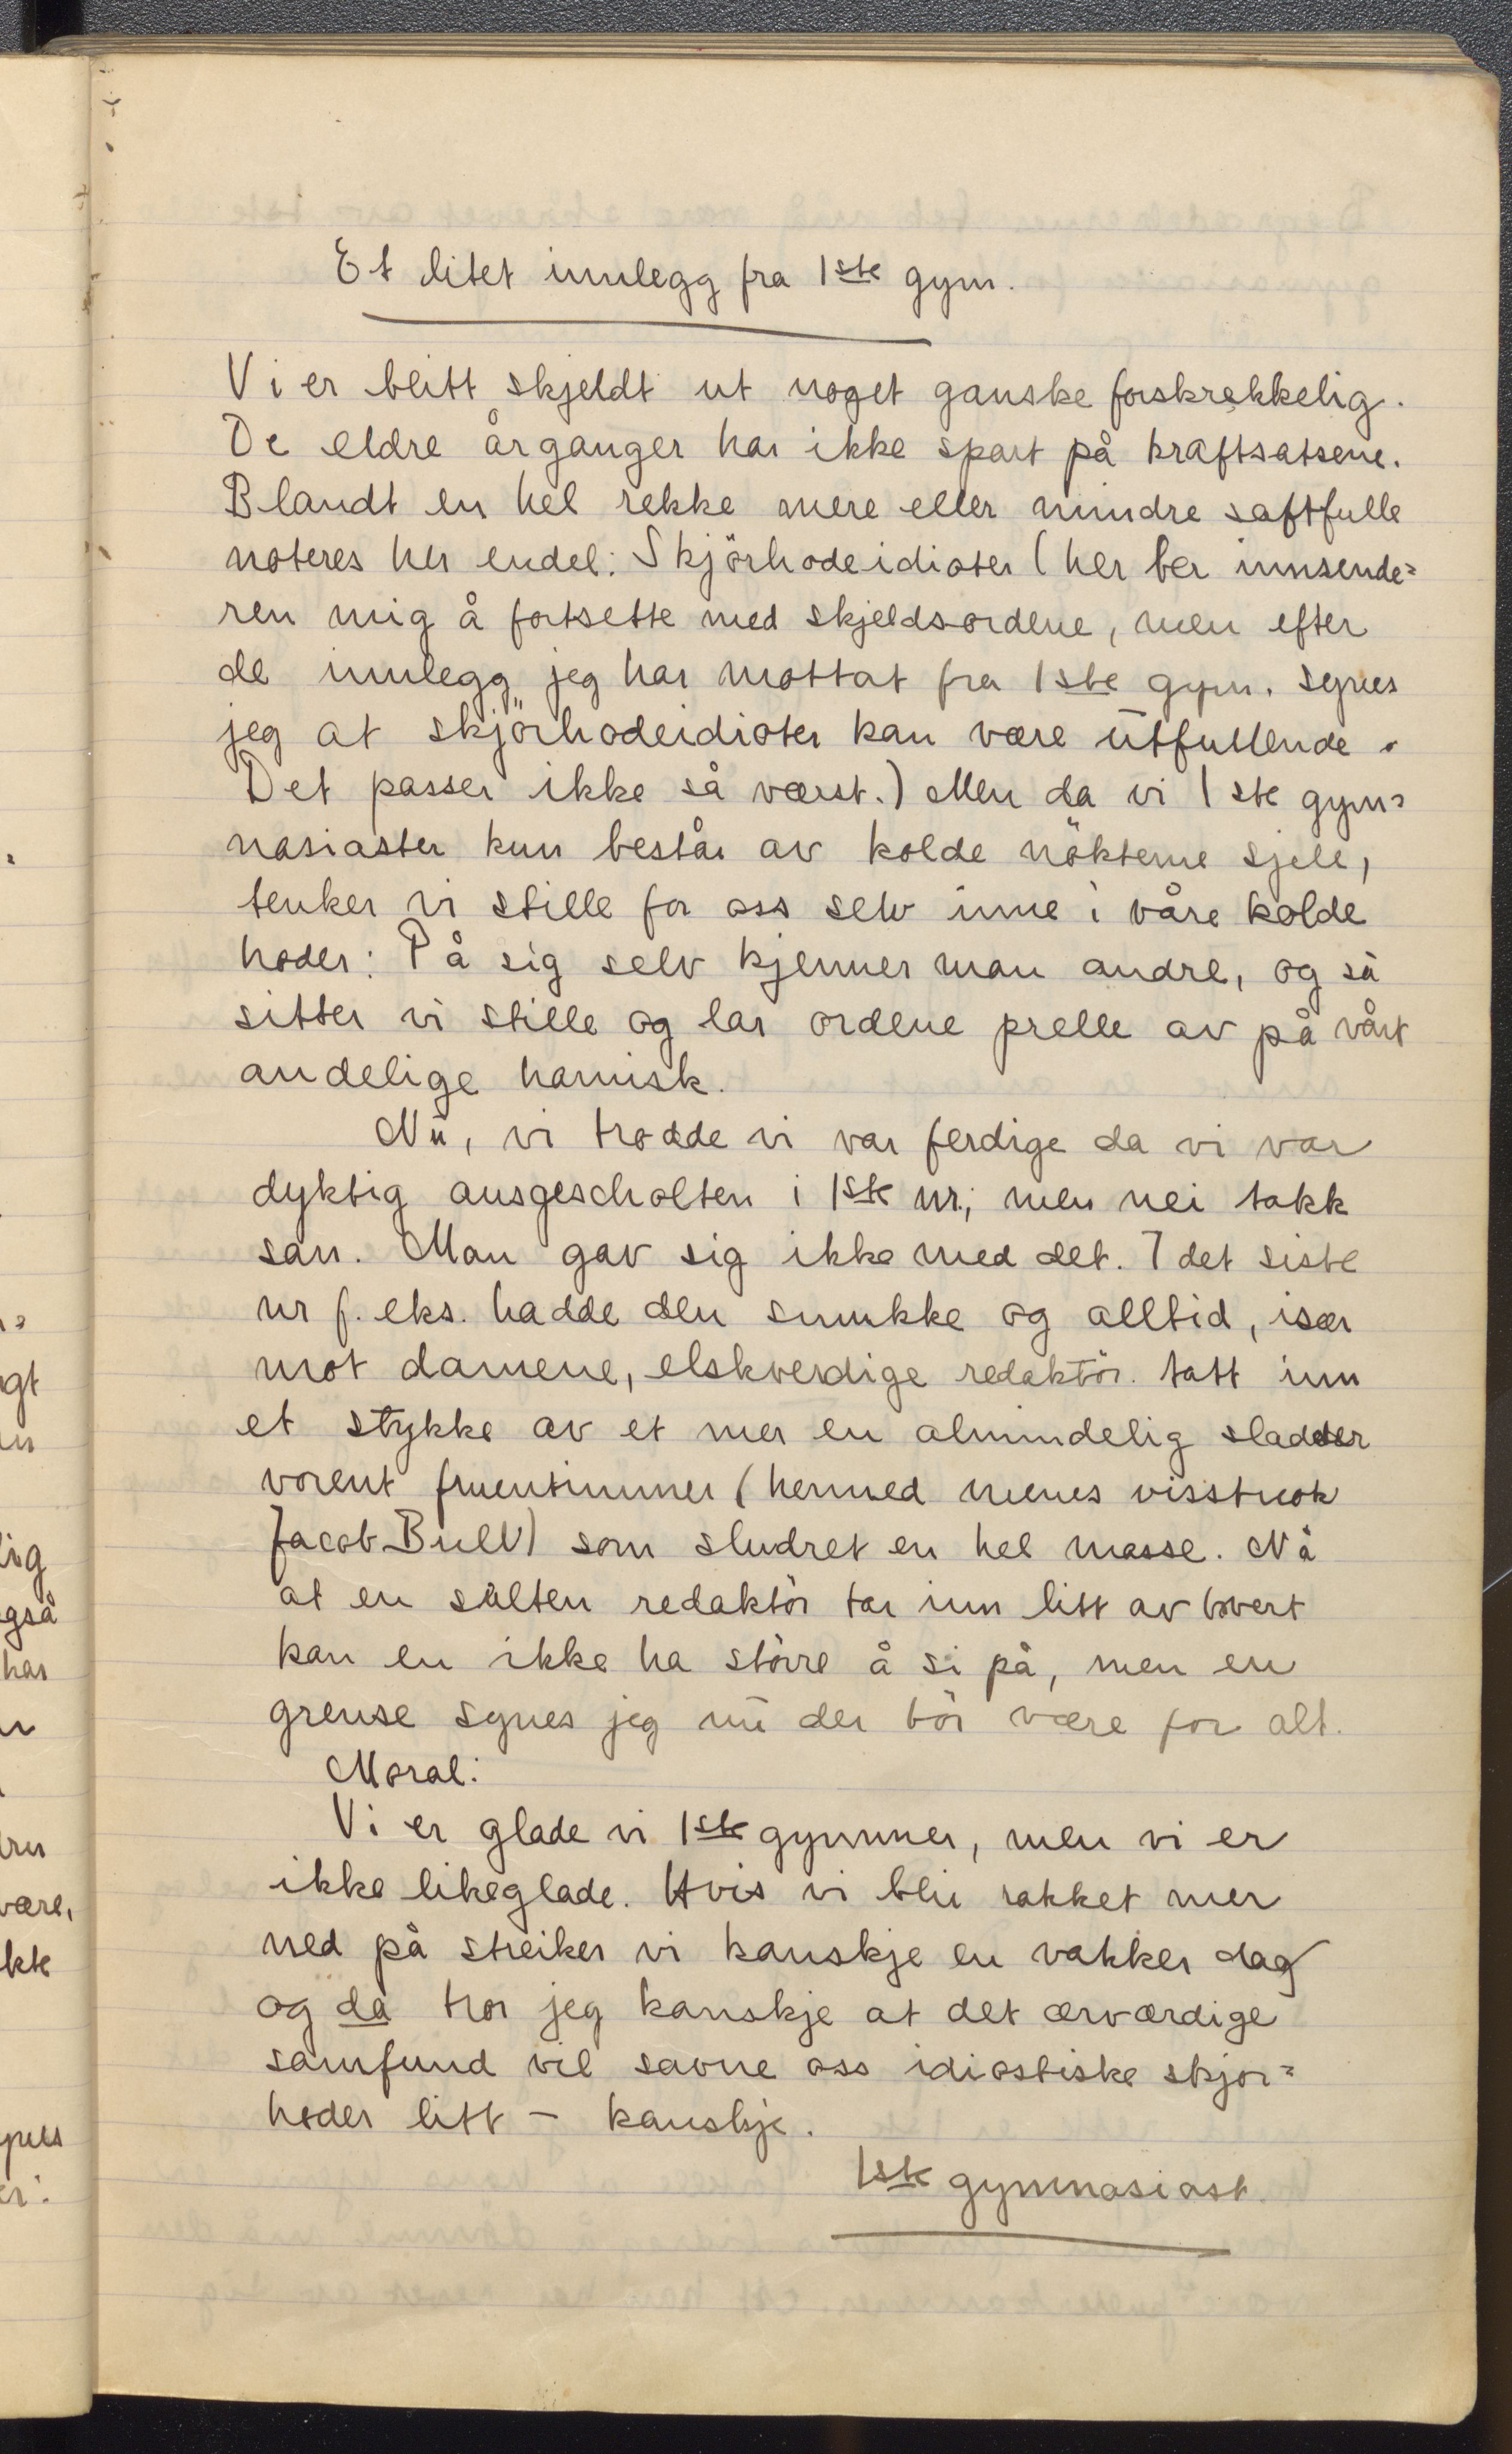 Et litet innlegg fra 1ste gym.
Vi er blitt skjeldt ut noget ganske forskrekkelig.
De eldre årganger har ikke spart på kraftsatsene.
Blandt en hel rekke mere eller mindre saftfulle
noteres her endel: Skjörhodeidioter (her ber innsende=
ren mig å fortsette med skjeldsordene, men efter
de innlegg jeg har mottat fra 1ste gym. synes
jeg at skjörhodeidioter kan være utfullende.
Det passer ikke så værst.) Men da vi 1ste gym=
nasiaster kun består av kolde nökterne sjele,
tenker vi stille for oss selv inne i våre kolde
hoder: På sig selv kjenner man andre, og så
sitter vi stille og lar ordene prelle av på vårt
andelige harnisk.
Nu, vi trodde vi var ferdige da vi var
dyktig ausgescholten i 1ste nr.; men nei takk
san. Man gav sig ikke med det. I det siste
nr f. eks. hadde den smukke og alltid, især
mot damene, elskverdige redaktör tatt inn
et stykke av et mer en almindelig sladder
vorent fruentimmer (hermed menes visstnok
Jacob Bull) som sludret en hel masse. Nå
at en sulten redaktör tar inn litt av hvert
kan en ikke ha större å si på, men en
grense synes jeg nu der bör være for alt.
Moral:
Vi er glade vi 1ste gymmer, men vi er
ikke likeglade. Hvis vi blir rakket mer
ned på streiker vi kanskje en vakker dag
og da tror jeg kanskje at det ærværdige
samfund vil savne oss idiotiske skjör=
hoder litt – kanskje.
1ste gymnasiast.
gt
lig
også
har
være,